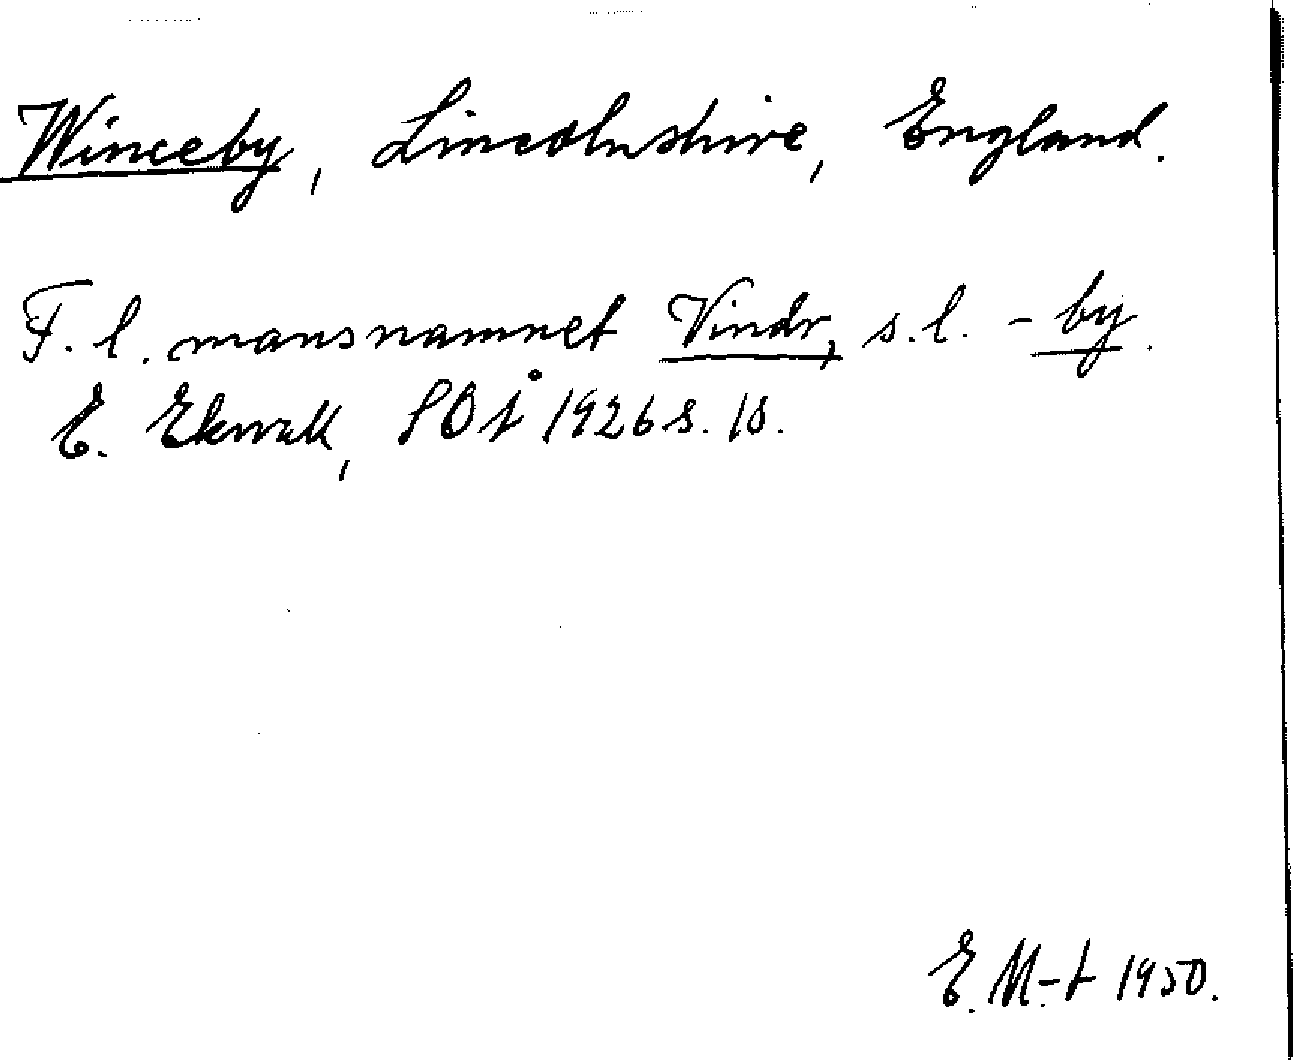 Winceby, Lincolnshire, England.
F. l. mansnamnet Vindr, s.l. -by.
E. Ekwall, SOÅ 1926 s. 18.
E. M-t 1950.